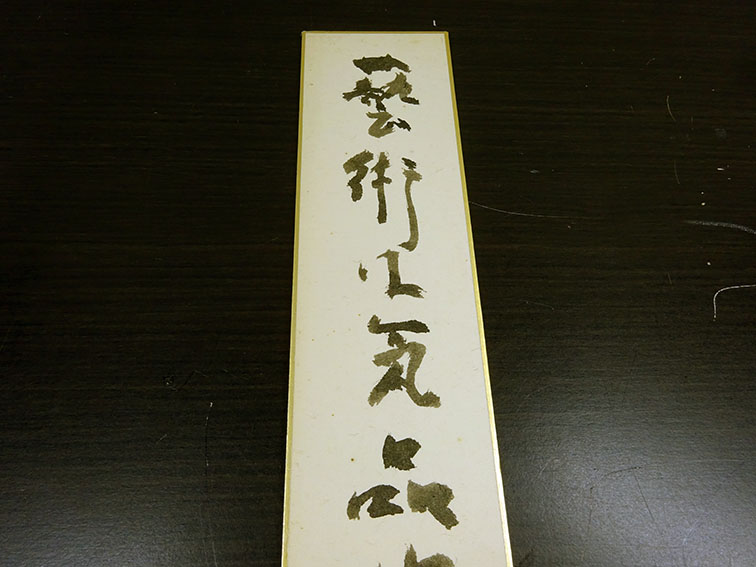 藝術は氣品